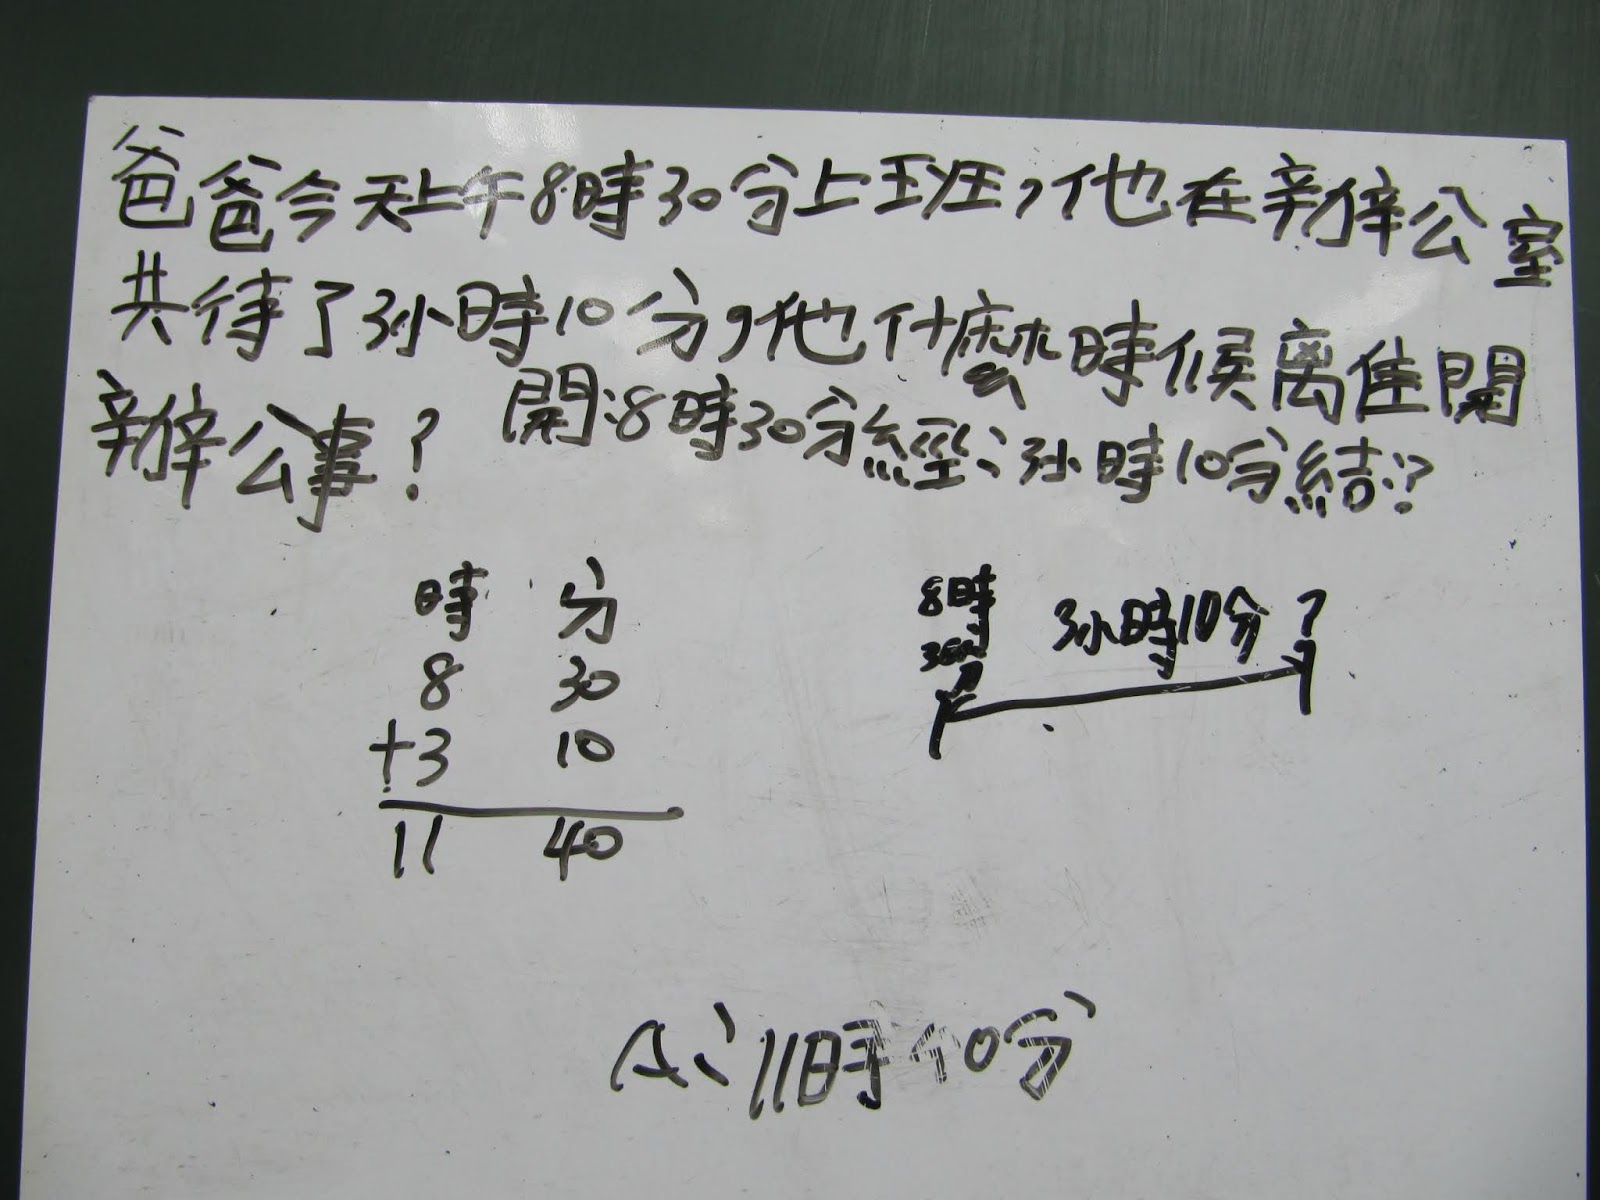 爸爸今天上午8時30分上班,他在辦公室
共待了3小時10分,他什麼時候離開
辦公事?
開:8時30分經:3小時10分結:?
時 分
8 30
+3 10
11 40
8時
30分
3小時10分 ?
A:11時40分